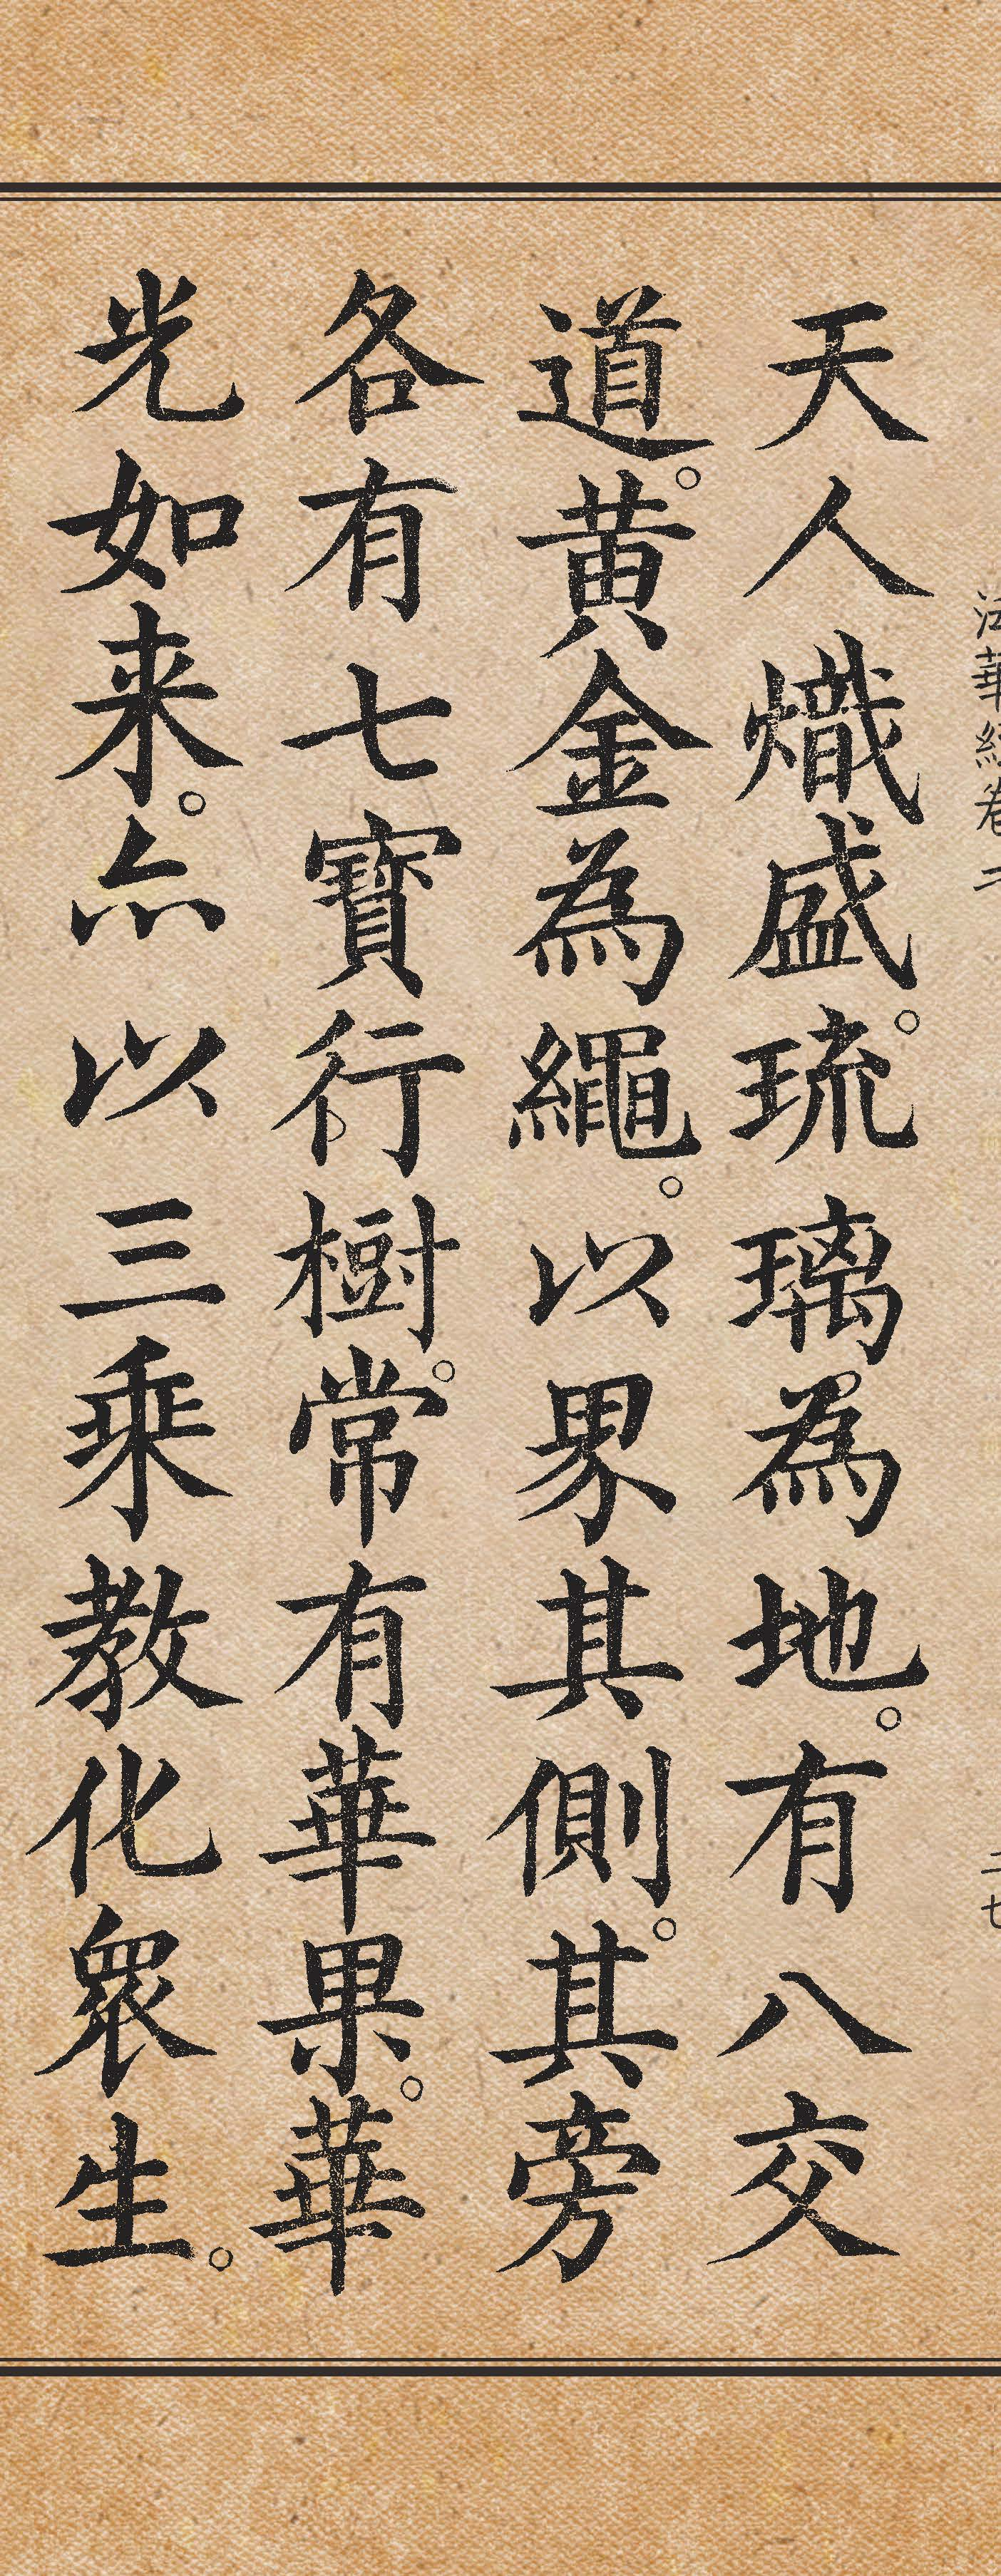 法華經卷二
二七
天人熾盛。琉璃為地。有八交
道。黃金為繩。以界其側。其旁
各有七寶行樹。常有華果。華
光如来。亦以三乘教化眾生。